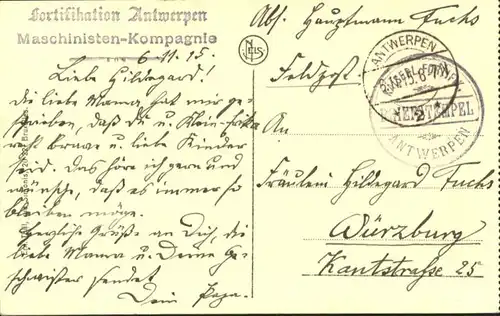 Fortifikation Antwerpen
Maschinisten-Kompagnie
6.11.15.
Liebe Hildegard!
die liebe Mama hat mir ge-
schrieben, daß du u. Klein-Erika
recht brave u. liebe Kinder
seid. Das höre ich gern und
wünsche, daß es immer so
bleiben möge.
Herzliche Grüße an Dich, die
liebe Mama u. Deine Ge-
schwister sendet
Dein Papa.
Abs. Hauptmann Fuchs
Feldpost
An
Fräulein Hildegard Fuchs
Würzburg
Kantstrasse 25
ANTWERPEN
ANTWERPEN